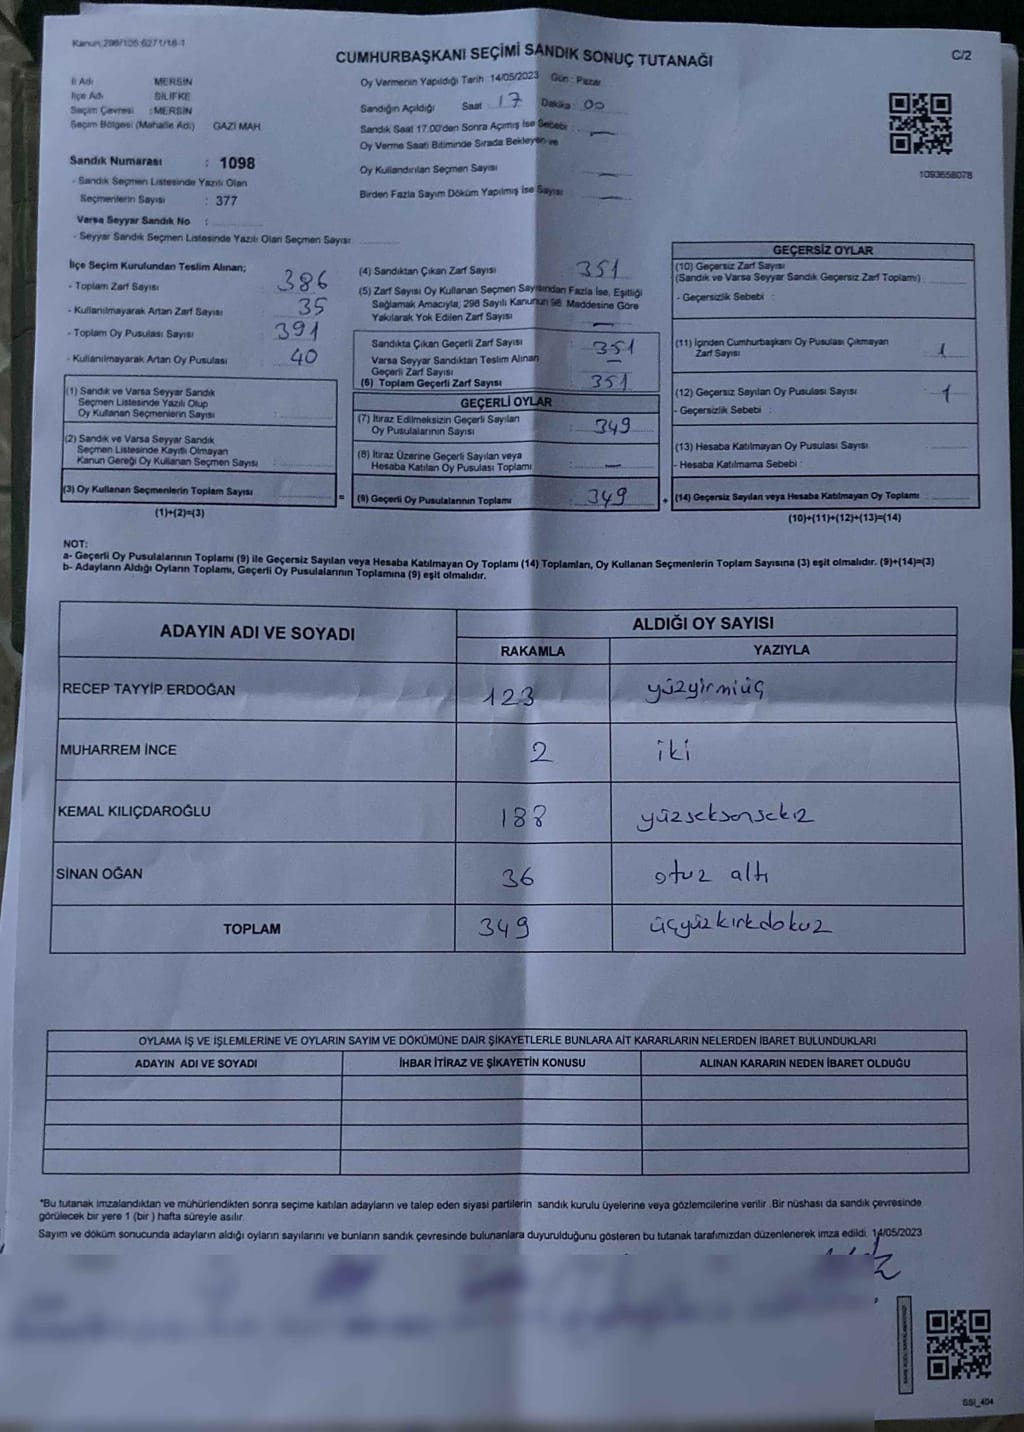 Kanun 298/105 6271/18-1
CUMHURBAŞKANI SEÇİMİ SANDIK SONUÇ TUTANAĞI
C/2
İl Adı MERSİN
İlçe Adı SİLİFKE
Seçim Çevresi : MERSİN
Seçim Bölgesi (Mahalle Adı) GAZİ MAH
Sandık Numarası : 1098
- Sandık Seçmen Listesinde Yazılı Olan
Seçmenlerin Sayısı : 377
Varsa Seyyar Sandık No :
- Seyyar Sandık Seçmen Listesinde Yazılı Olan Seçmen Sayısı
Oy Vermenin Yapıldığı Tarih 14/05/2023 Gün : Pazar
Sandığın Açıldığı Saat : 17 Dakika : 00
Sandık Saat 17.00'den Sonra Açılmış İse Sebebi : —
Oy Verme Saati Bitiminde Sırada Bekleyen ve
Oy Kullandırılan Seçmen Sayısı —
Birden Fazla Sayım Döküm Yapılmış İse Sayısı —
1093658078
İlçe Seçim Kurulundan Teslim Alınan;
- Toplam Zarf Sayısı 386
- Kullanılmayarak Artan Zarf Sayısı 35
- Toplam Oy Pusulası Sayısı 391
- Kullanılmayarak Artan Oy Pusulası 40
(1) Sandık ve Varsa Seyyar Sandık
Seçmen Listesinde Yazılı Olup
Oy Kullanan Seçmenlerin Sayısı :
(2) Sandık ve Varsa Seyyar Sandık
Seçmen Listesinde Kayıtlı Olmayan
Kanun Gereği Oy Kullanan Seçmen Sayısı :
(3) Oy Kullanan Seçmenlerin Toplam Sayısı =
(1)+(2)=(3)
(4) Sandıktan Çıkan Zarf Sayısı 351
(5) Zarf Sayısı Oy Kullanan Seçmen Sayısından Fazla İse, Eşitliği
Sağlamak Amacıyla, 298 Sayılı Kanunun 98. Maddesine Göre
Yakılarak Yok Edilen Zarf Sayısı —
Sandıkta Çıkan Geçerli Zarf Sayısı : 351
Varsa Seyyar Sandıktan Teslim Alınan
Geçerli Zarf Sayısı —
(6) Toplam Geçerli Zarf Sayısı 351
GEÇERLİ OYLAR
(7) İtiraz Edilmeksizin Geçerli Sayılan
Oy Pusulalarının Sayısı : 349
(8) İtiraz Üzerine Geçerli Sayılan veya
Hesaba Katılan Oy Pusulası Toplamı : —
(9) Geçerli Oy Pusulalarının Toplamı : 349 +
GEÇERSİZ OYLAR
(10) Geçersiz Zarf Sayısı
(Sandık ve Varsa Seyyar Sandık Geçersiz Zarf Toplamı)
- Geçersizlik Sebebi :
(11) İçinden Cumhurbaşkanı Oy Pusulası Çıkmayan
Zarf Sayısı 1
(12) Geçersiz Sayılan Oy Pusulası Sayısı 1
- Geçersizlik Sebebi :
(13) Hesaba Katılmayan Oy Pusulası Sayısı
- Hesaba Katılmama Sebebi :
(14) Geçersiz Sayılan veya Hesaba Katılmayan Oy Toplamı
(10)+(11)+(12)+(13)=(14)
NOT:
a- Geçerli Oy Pusulalarının Toplamı (9) ile Geçersiz Sayılan veya Hesaba Katılmayan Oy Toplamı (14) Toplamları, Oy Kullanan Seçmenlerin Toplam Sayısına (3) eşit olmalıdır. (9)+(14)=(3)
b- Adayların Aldığı Oyların Toplamı, Geçerli Oy Pusulalarının Toplamına (9) eşit olmalıdır.
ADAYIN ADI VE SOYADI
ALDIĞI OY SAYISI
RAKAMLA YAZIYLA
RECEP TAYYİP ERDOĞAN 123 yüzyirmiüç
MUHARREM İNCE 2 iki
KEMAL KILIÇDAROĞLU 188 yüzseksensekiz
SİNAN OĞAN 36 otuz altı
TOPLAM 349 üçyüzkırkdokuz
OYLAMA İŞ VE İŞLEMLERİNE VE OYLARIN SAYIM VE DÖKÜMÜNE DAİR ŞİKAYETLERLE BUNLARA AİT KARARLARIN NELERDEN İBARET BULUNDUKLARI
ADAYIN ADI VE SOYADI İHBAR İTİRAZ VE ŞİKAYETİN KONUSU ALINAN KARARIN NEDEN İBARET OLDUĞU
*Bu tutanak imzalandıktan ve mühürlendikten sonra seçime katılan adayların ve talep eden siyasi partilerin sandık kurulu üyelerine veya gözlemcilerine verilir .Bir nüshası da sandık çevresinde
görülecek bir yere 1 (bir ) hafta süreyle asılır.
Sayım ve döküm sonucunda adayların aldığı oyların sayılarını ve bunların sandık çevresinde bulunanlara duyurulduğunu gösteren bu tutanak tarafımızdan düzenlenerek imza edildi. 14/05/2023
SSI_404